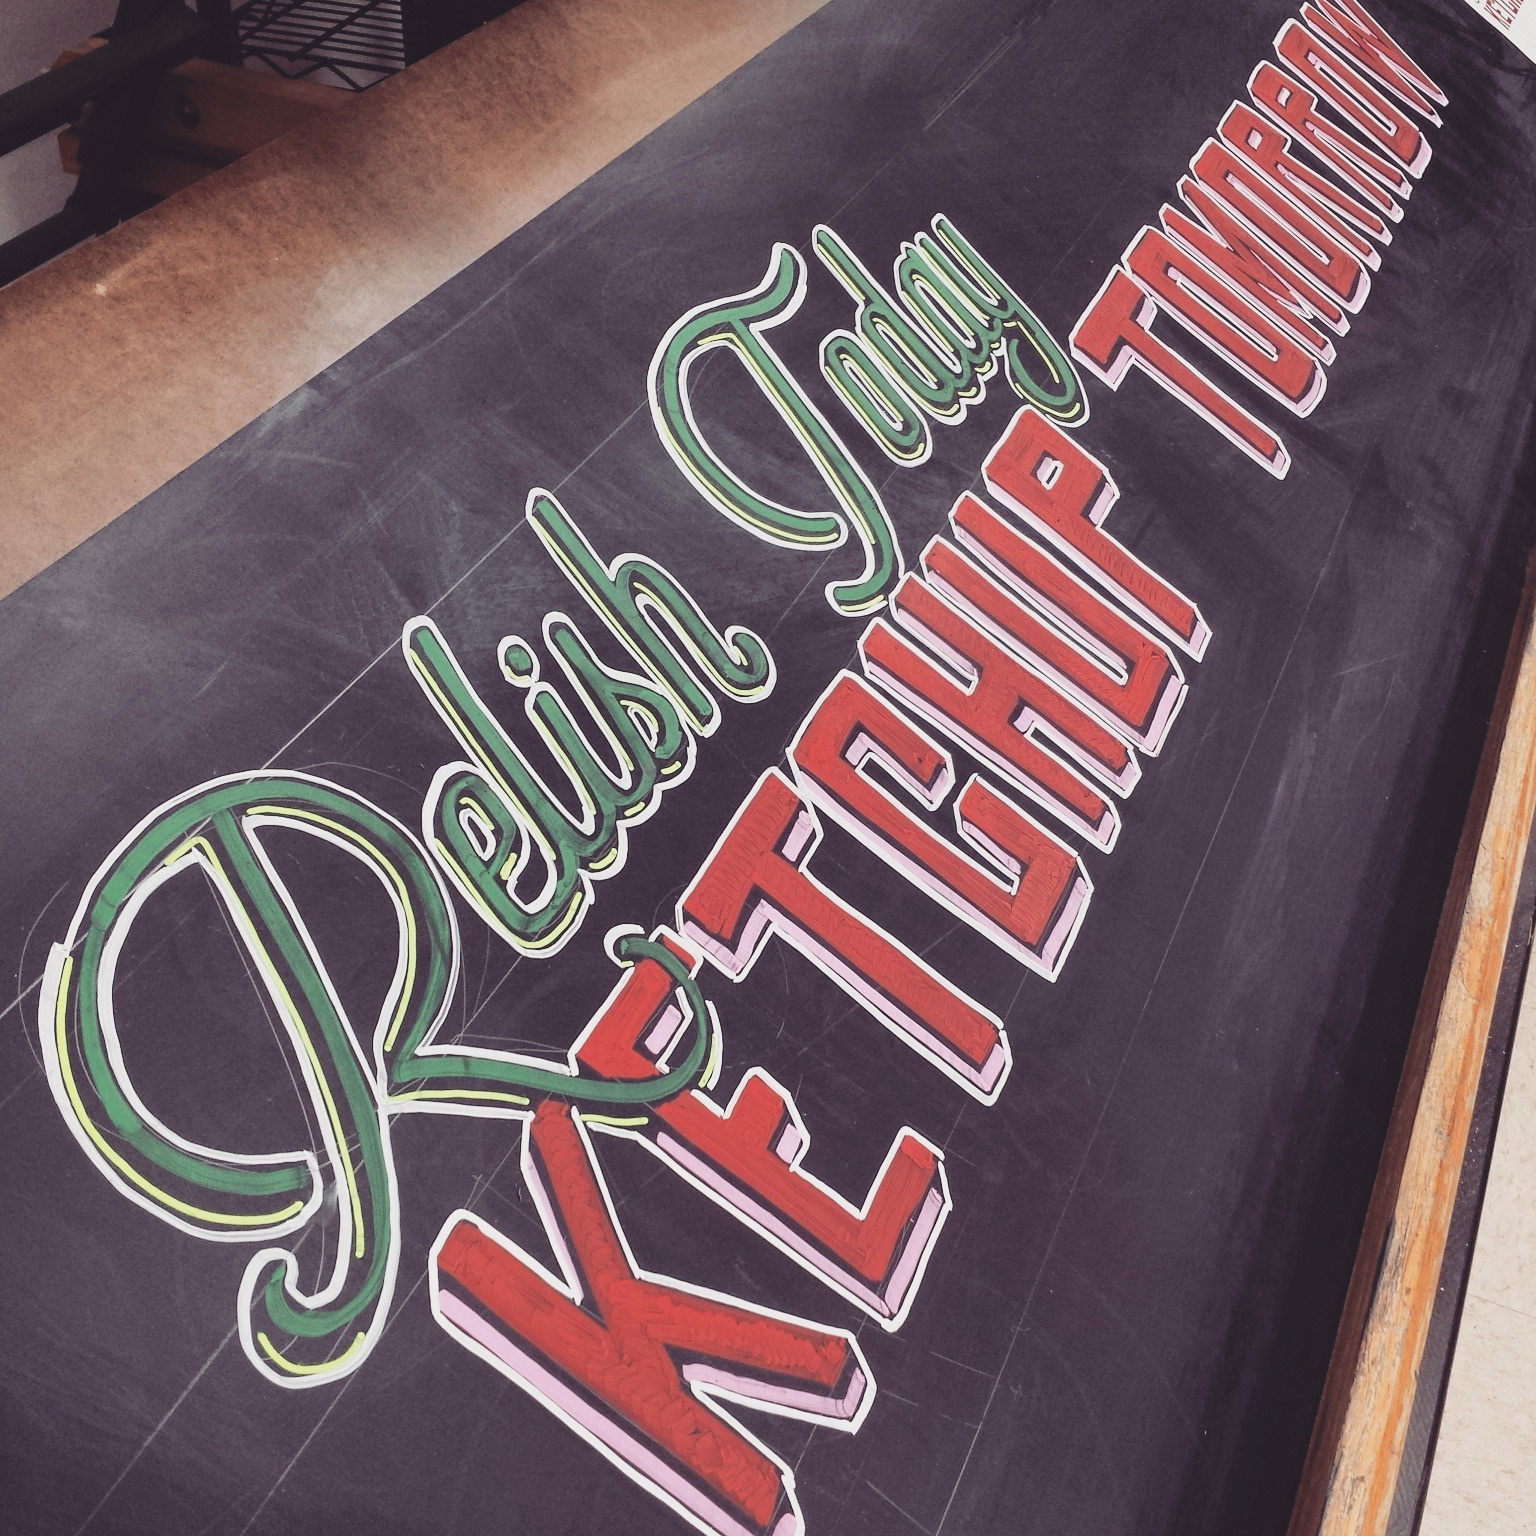 Relish Today
KETCHUP TOMORROW